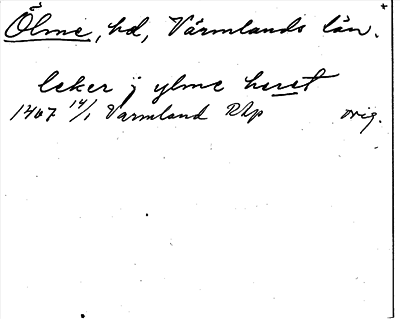 Ölme, hd, Värmlands län.
leker j ylme heret
1407 14/1 Varmland RAp orig.